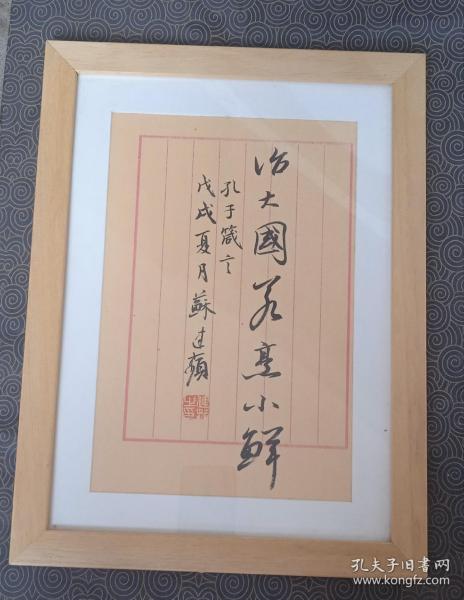 治大國若烹小鮮
孔子箴言
戊戌夏月蘇建
孔夫子旧书网
www.kongfz.com